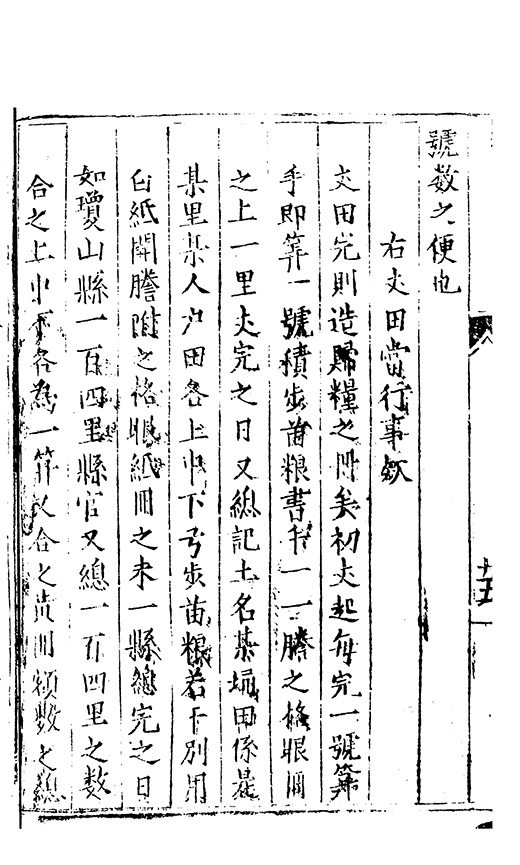 號数之便也
右丈田當行事欵
丈田完則造歸糧之冊矣初丈起每完一號筭
手即筭一號積步苗粮書手一一謄之格眼冊
之上一里丈完之日又總記土名某堝田係是
某里某人户田各上中下弓步苗粮若干別用
白紙開謄附之格眼紙冊之末一縣總完之日
如瓊山縣一百四里縣官又總一百四里之数
合之上中下各為一筭又合之共則額数之總
十五